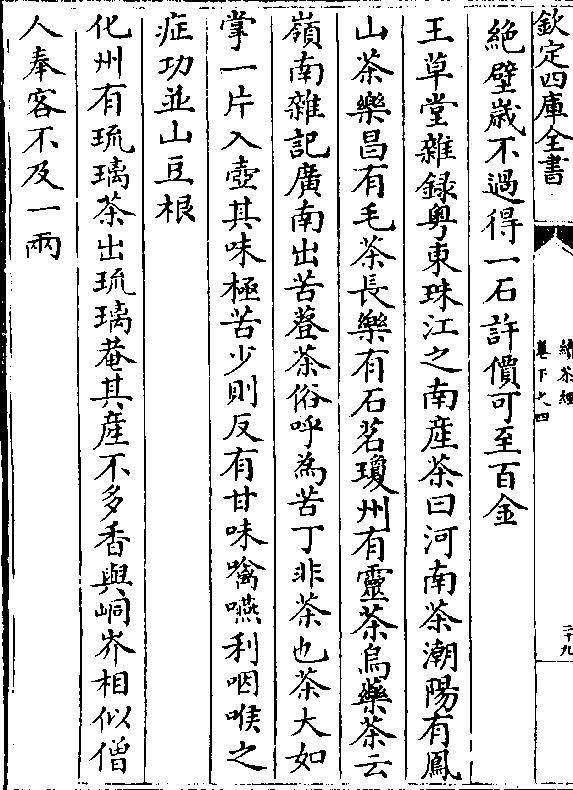 欽定四庫全書
續茶經
卷下之四
二十九
絶壁歳不過得一石許價可至百金
王草堂雜録粤東珠江之南産茶曰河南茶潮陽有鳳
山茶樂昌有毛茶長樂有石茗瓊州有靈茶烏藥茶云
嶺南雜記廣南出苦䔲茶俗呼為苦丁非茶也茶大如
掌一片入壺其味極苦少則反有甘味噙嚥利咽喉之
症功並山豆根
化州有琉璃茶出琉璃菴其産不多香與峒岕相似僧
人奉客不及一兩